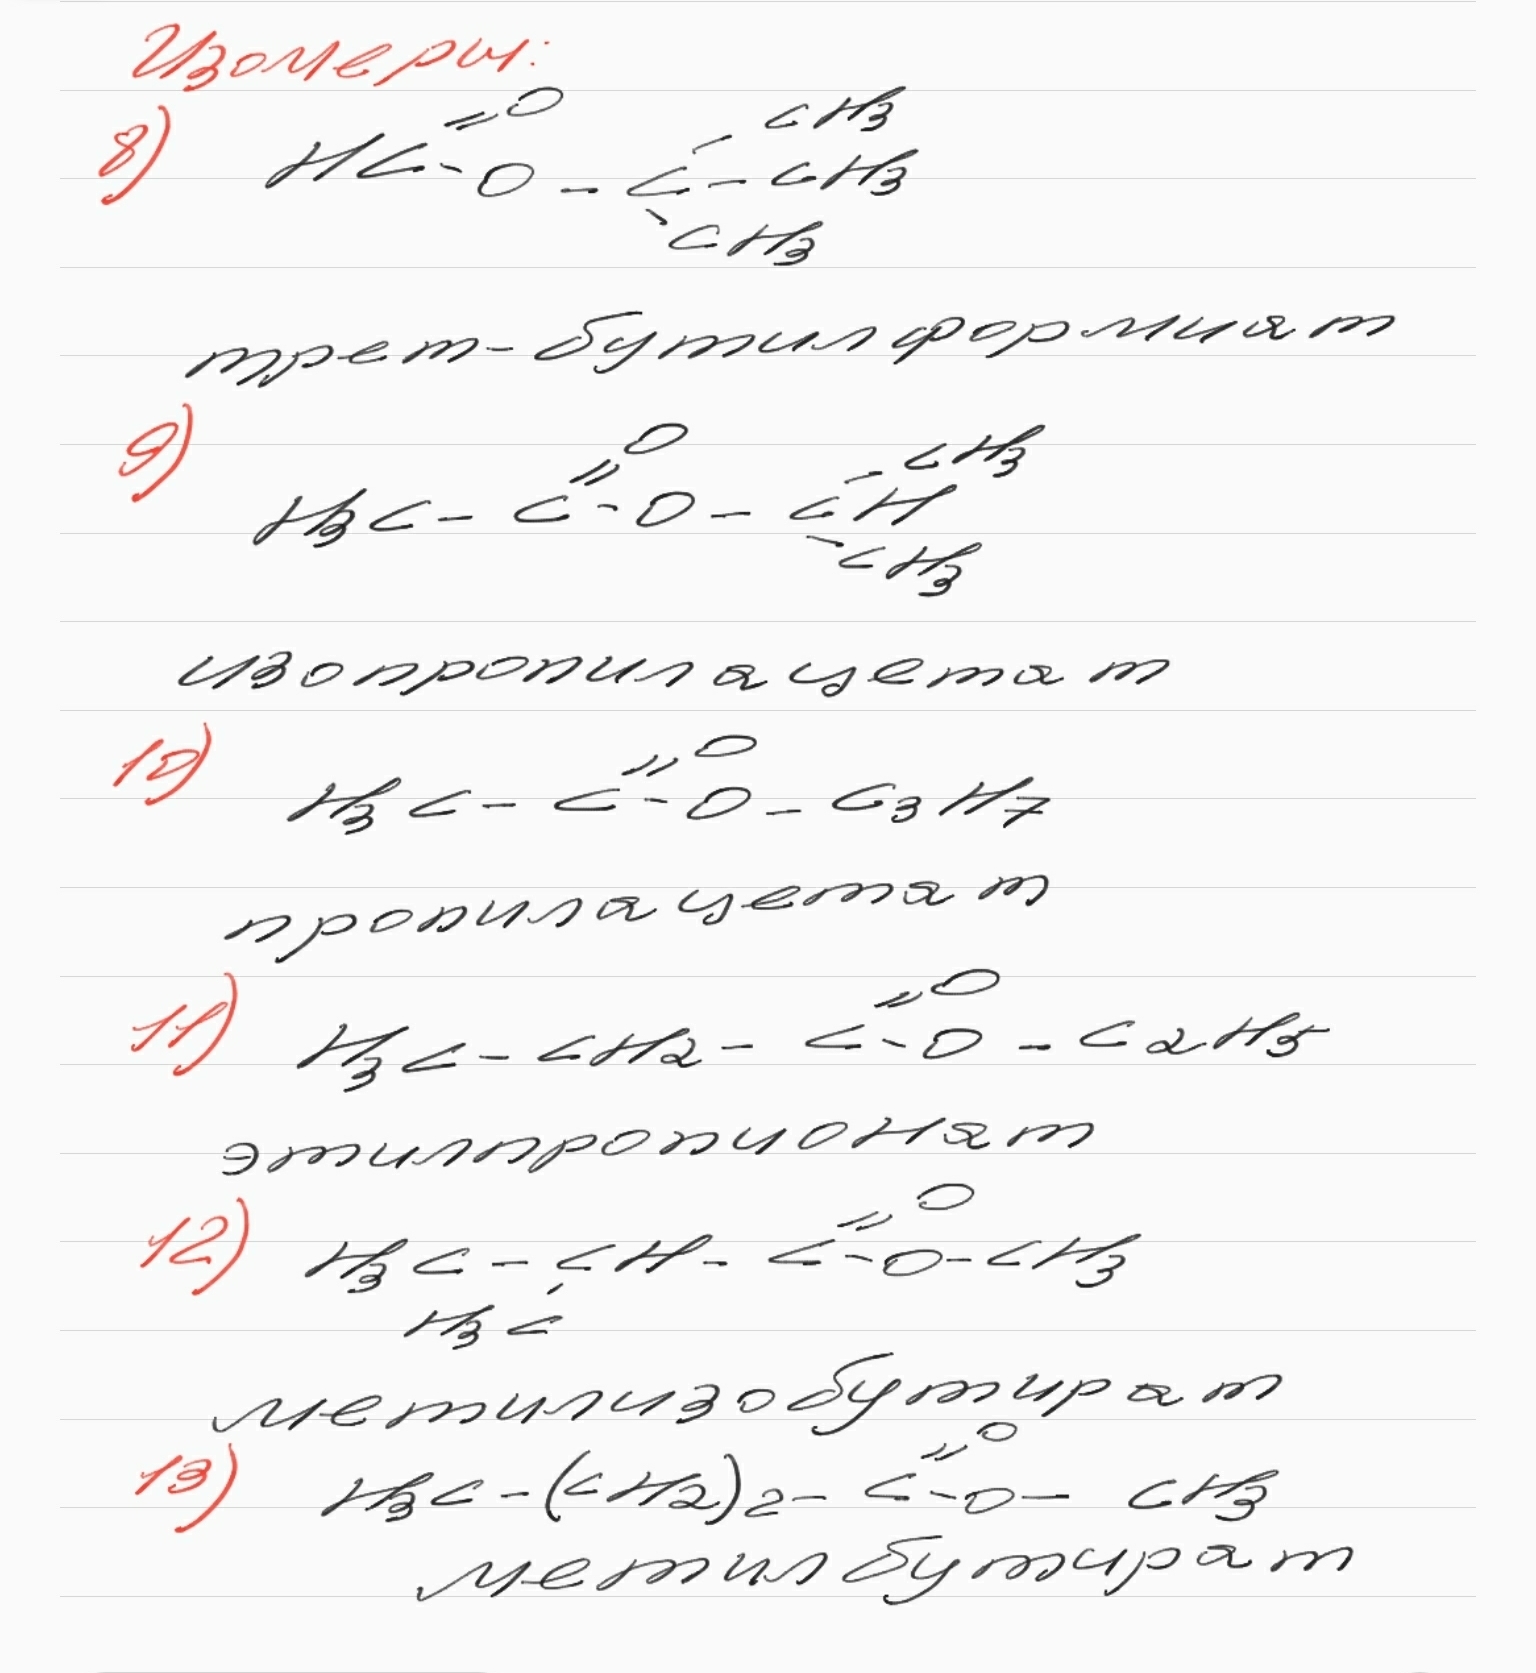 Изомеры:
8) HC=O -O-C-CH3 -CH3 -CH3
трет-бутилформиат
9) H3C-C=O -O-CH-CH3 -CH3
изопропилацетат
10) H3C-C=O -O-C3H7
пропилацетат
11) H3C-CH2-C=O -O-C2H5
этилпропионат
12) H3C-CH-C=O -O-CH3
H3C
метилизобутират
13) H3C-(CH2)2-C=O -O-CH3
метилбутират